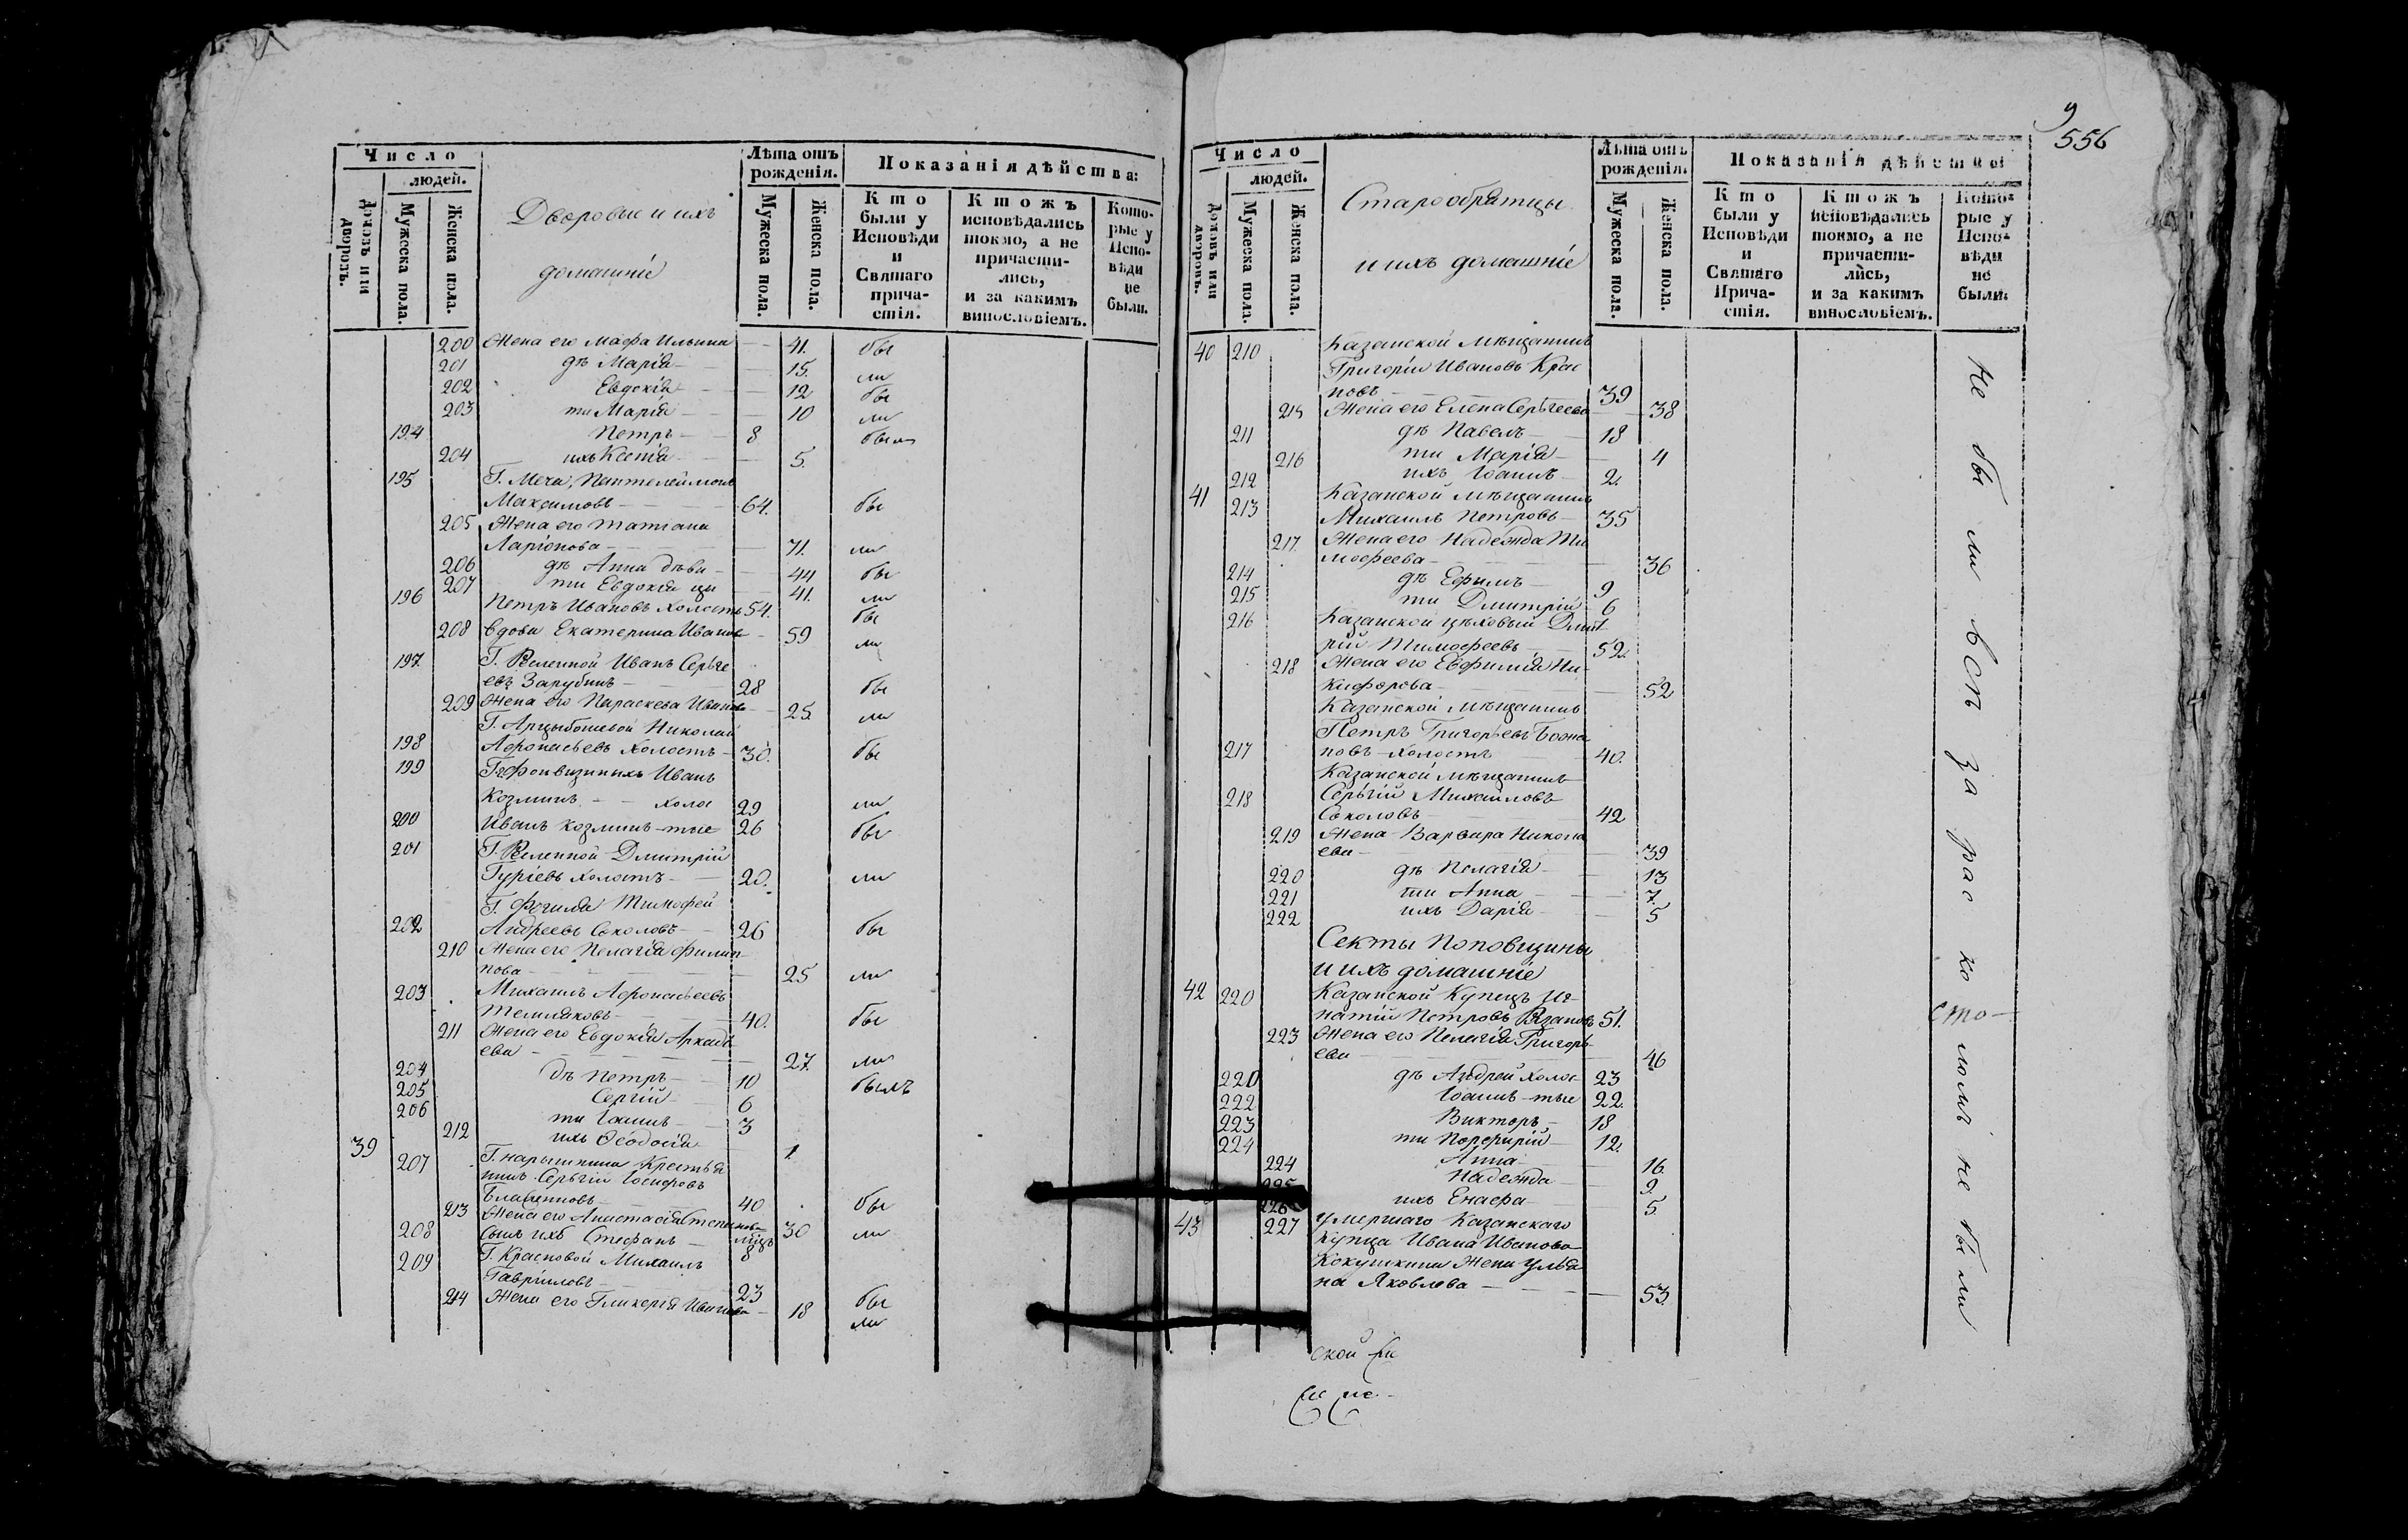 Число
людей.
Домовъ или дворовъ.
Мужеска пола.
Женска пола.
Дворовые и ихъ
домашнiе
Лѣта отъ рожденiя.
Мужеска пола.
Женска пола.
Показанiя дѣйства:
Кто были у Исповѣди и Святаго прича-стiя.
Ктожъ исповѣдались токмо, а не причасти-лись, и за какимъ винословiемъ.
Кото-рые у Испо-вѣди не были.
200 Жена его Марфа Ильина — 41. бы
201 дѣ Марiя — 15. ли
202 Евдокiя — 12 бы
203 ти Марiя — 10 ли
194 Петръ — 8 былъ
204 ихъ Ксенiя — 5.
195 Г. Меча, Пантелеймонъ
Максимовъ — 64. бы
205 Жена его Татiана
Ларiонова — 71. ли
206 дѣ Анна дѣви — 44 бы
207 ти Евдокiя цы 41. ли
196 Петръ Ивановъ холостъ 54. бы
208 Вдова Екатерина Иванов — 59 ли
197 Г. Иванъ Сергѣе
евъ Зарубинъ — 28 бы
209 Жена его Параскева Иванова — 25. ли
Г. Арцыбошевой Николай
198 Афонасьевъ холостъ — 30. бы
199 Г. Фонвизиныхъ Иванъ
Козминъ — холос 29 ли
200 Иванъ Козминъ — тые 26 бы
201 Г. Дмитрiй
Гурiевъ холостъ — 20. ли
Г. Тимофей
202 Андреевъ Соколовъ — 26 бы
210 Жена его Пелагiя Филип
пова — 25 ли
203 Михаилъ Афонасьевъ
Темляковъ — 40. бы
211 Жена его Евдокiя Аркадь
ева — 27. ли
204 дѣ Петръ — 10 былъ
205 Сергiй — 6
206 ти Iоаннъ — 3
212 ихъ Ѳеодосiя 1.
39 207 Г. Нарышкина Крестья
нинъ Сергiй Iосифовъ
40 бы
213 Жена его Анастасiя Степанова 30 ли
208 Сынъ ихъ Стефанъ — мцъ 8
209 Г. Красновой Михаилъ
Гаврiиловъ — 23 бы
214 Жена его Гликерiя Иванова — 18 ли
9
556
Число
людей.
Домовъ или дворовъ.
Мужеска пола.
Женска пола.
Старообрятцы
и ихъ домашнiе
Лѣта отъ рожденiя.
Мужеска пола.
Женска пола.
Показанiя дѣйства
Кто были у Исповѣди и Святаго Прича-стiя.
Ктожъ исповѣдались токмо, а не причасти-лись, и за какимъ винословiемъ.
Кото-рые у Испо-вѣди не были.
40 210 Казанской Мѣщанинъ
Григорiй Ивановъ Крас
новъ — 39
215 Жена его Елена Сергѣева — 38
211 дѣ Павелъ — 18
216 ти Марiя — 4
212 ихъ Iоаннъ — 2.
41 213 Казанской мѣщанинъ
Михаилъ Петровъ — 35
217. Жена его Надежда Ти
мофеева — 36
214 дѣ Ефимъ — 9
215 ти Дмитрiй 6
216 Казанской цѣховый Дмит
рiй Тимофеевъ — 52.
218 Жена его Евфимiя Ни-
кифорова — 52
Казанской мѣщанинъ
Петръ Григорьевъ Божа
217 новъ — холостъ 40.
Казанской мѣщанинъ
218 Сергiй Михайловъ
Соколовъ — 42
219 Жена Варвара Никола
ева — 39
220 дѣ Пелагiя — 13
221 ти Анна — 7.
222 ихъ Дарiя — 5
Секты Поповщины
и ихъ домашнiе
42 220 Казанской Купецъ Иг-
натiй Петровъ Рязановъ 51.
223 Жена его Пелагiя Григорь-
ева — 46
220 дѣ Андрей холос- 23
222 Iоаннъ — тые 22.
223 Викторъ — 18
224 ти Порфирiй — 12.
224 Анна — 16.
225 Надежда — 9.
226 ихъ Енафа — 5
43 227 умершаго Казанскаго
Купца Ивана Иванова
Кокушкина Жена Улья
на Яковлева — 53.
Не бы ли всѣ за рас ко
сто-
ломъ не бы ли
ской